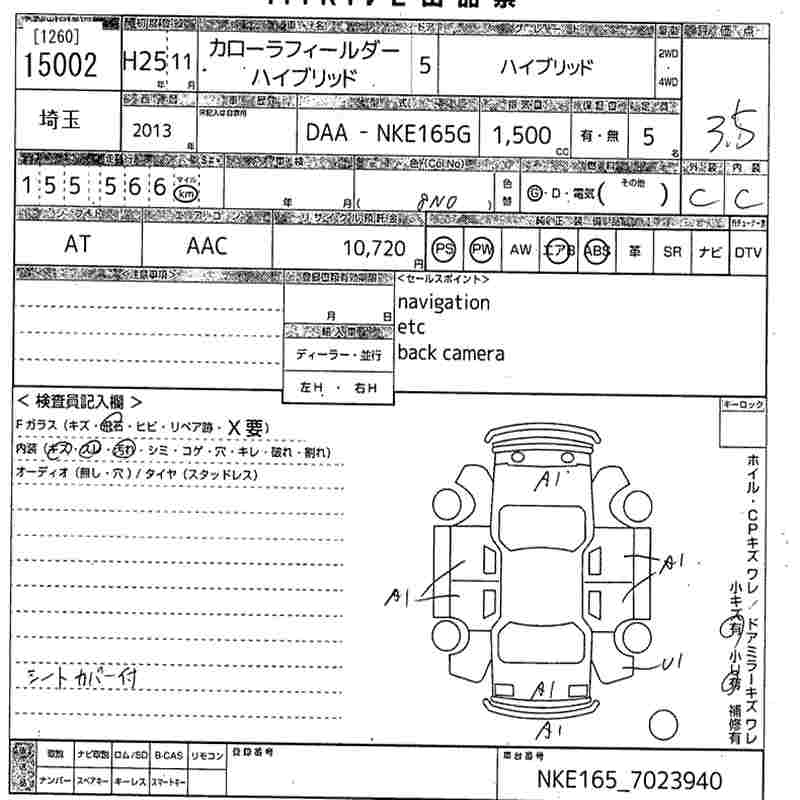 [1260]
15002
H25 11
年 月
カローラフィールダー
ハイブリッド
5
ハイブリッド
2WD
・
4WD
埼玉
2013
年
DAA - NKE165G
1,500
CC
有・無
5
名
3.5
155,566
マイル
km
年 月
( 8N0 )
色替
G・D・電気( その他 )
外装 内装
C C
リサイクル預託金
AT
AAC
10,720
円
PS PW AW エアB ABS 革 SR ナビ DTV
<セールスポイント>
navigation
etc
back camera
月 日
輸入車
ディーラー・並行
左H ・ 右H
＜ 検査員記入欄 ＞
Fガラス (キズ・飛石・ヒビ・リペア跡・X要)
内装 (キズ・スレ・汚れ・シミ・コゲ・穴・キレ・破れ・割れ)
オーディオ (無し・穴) / タイヤ (スタッドレス)
シートカバー付
キーロック
A1
A1
A1
U1
A1
A1
ホイル・CPキズ ワレ / ドアミラーキズ ワレ
小キズ有 / 小U有 補修有
取説 ナビ取説 ロム/SD B-CAS リモコン
ナンバー スペアキー キーレス スマートキー
登録番号
車台番号
NKE165_7023940